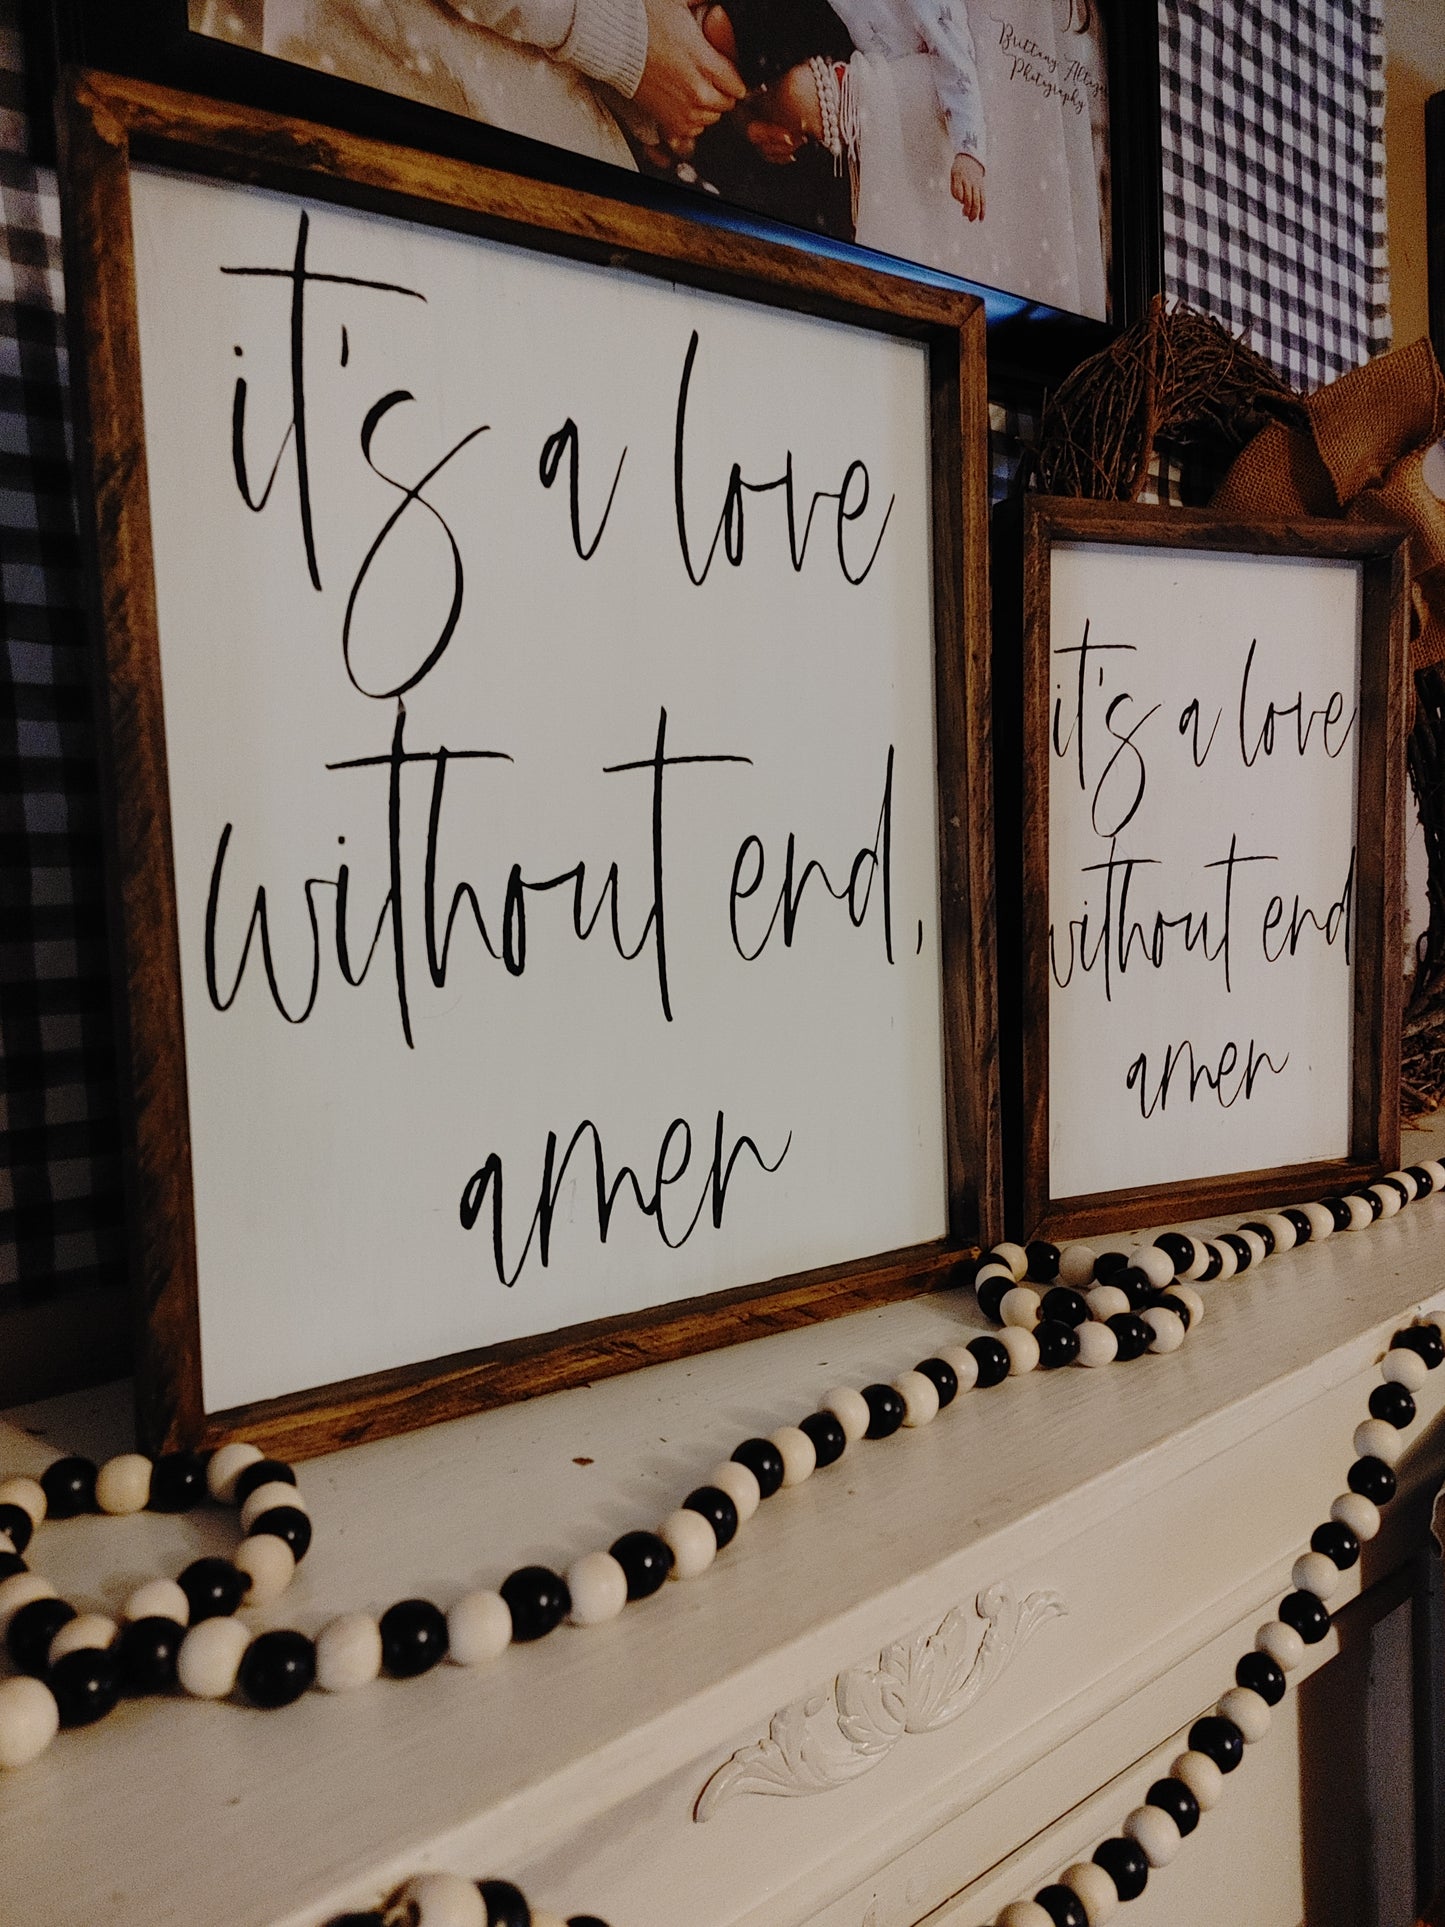 Brittany Altaye
Photography
it's a love
without end,
amen
it's a love
without end
amen